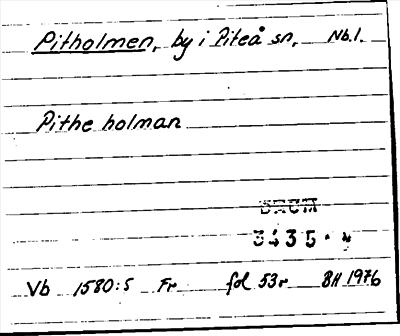 Pitholmen, by i Piteå sn, Nb.l.
Pithe holman
3435
Vb 1580:5 Fr fol 53r BH 1976